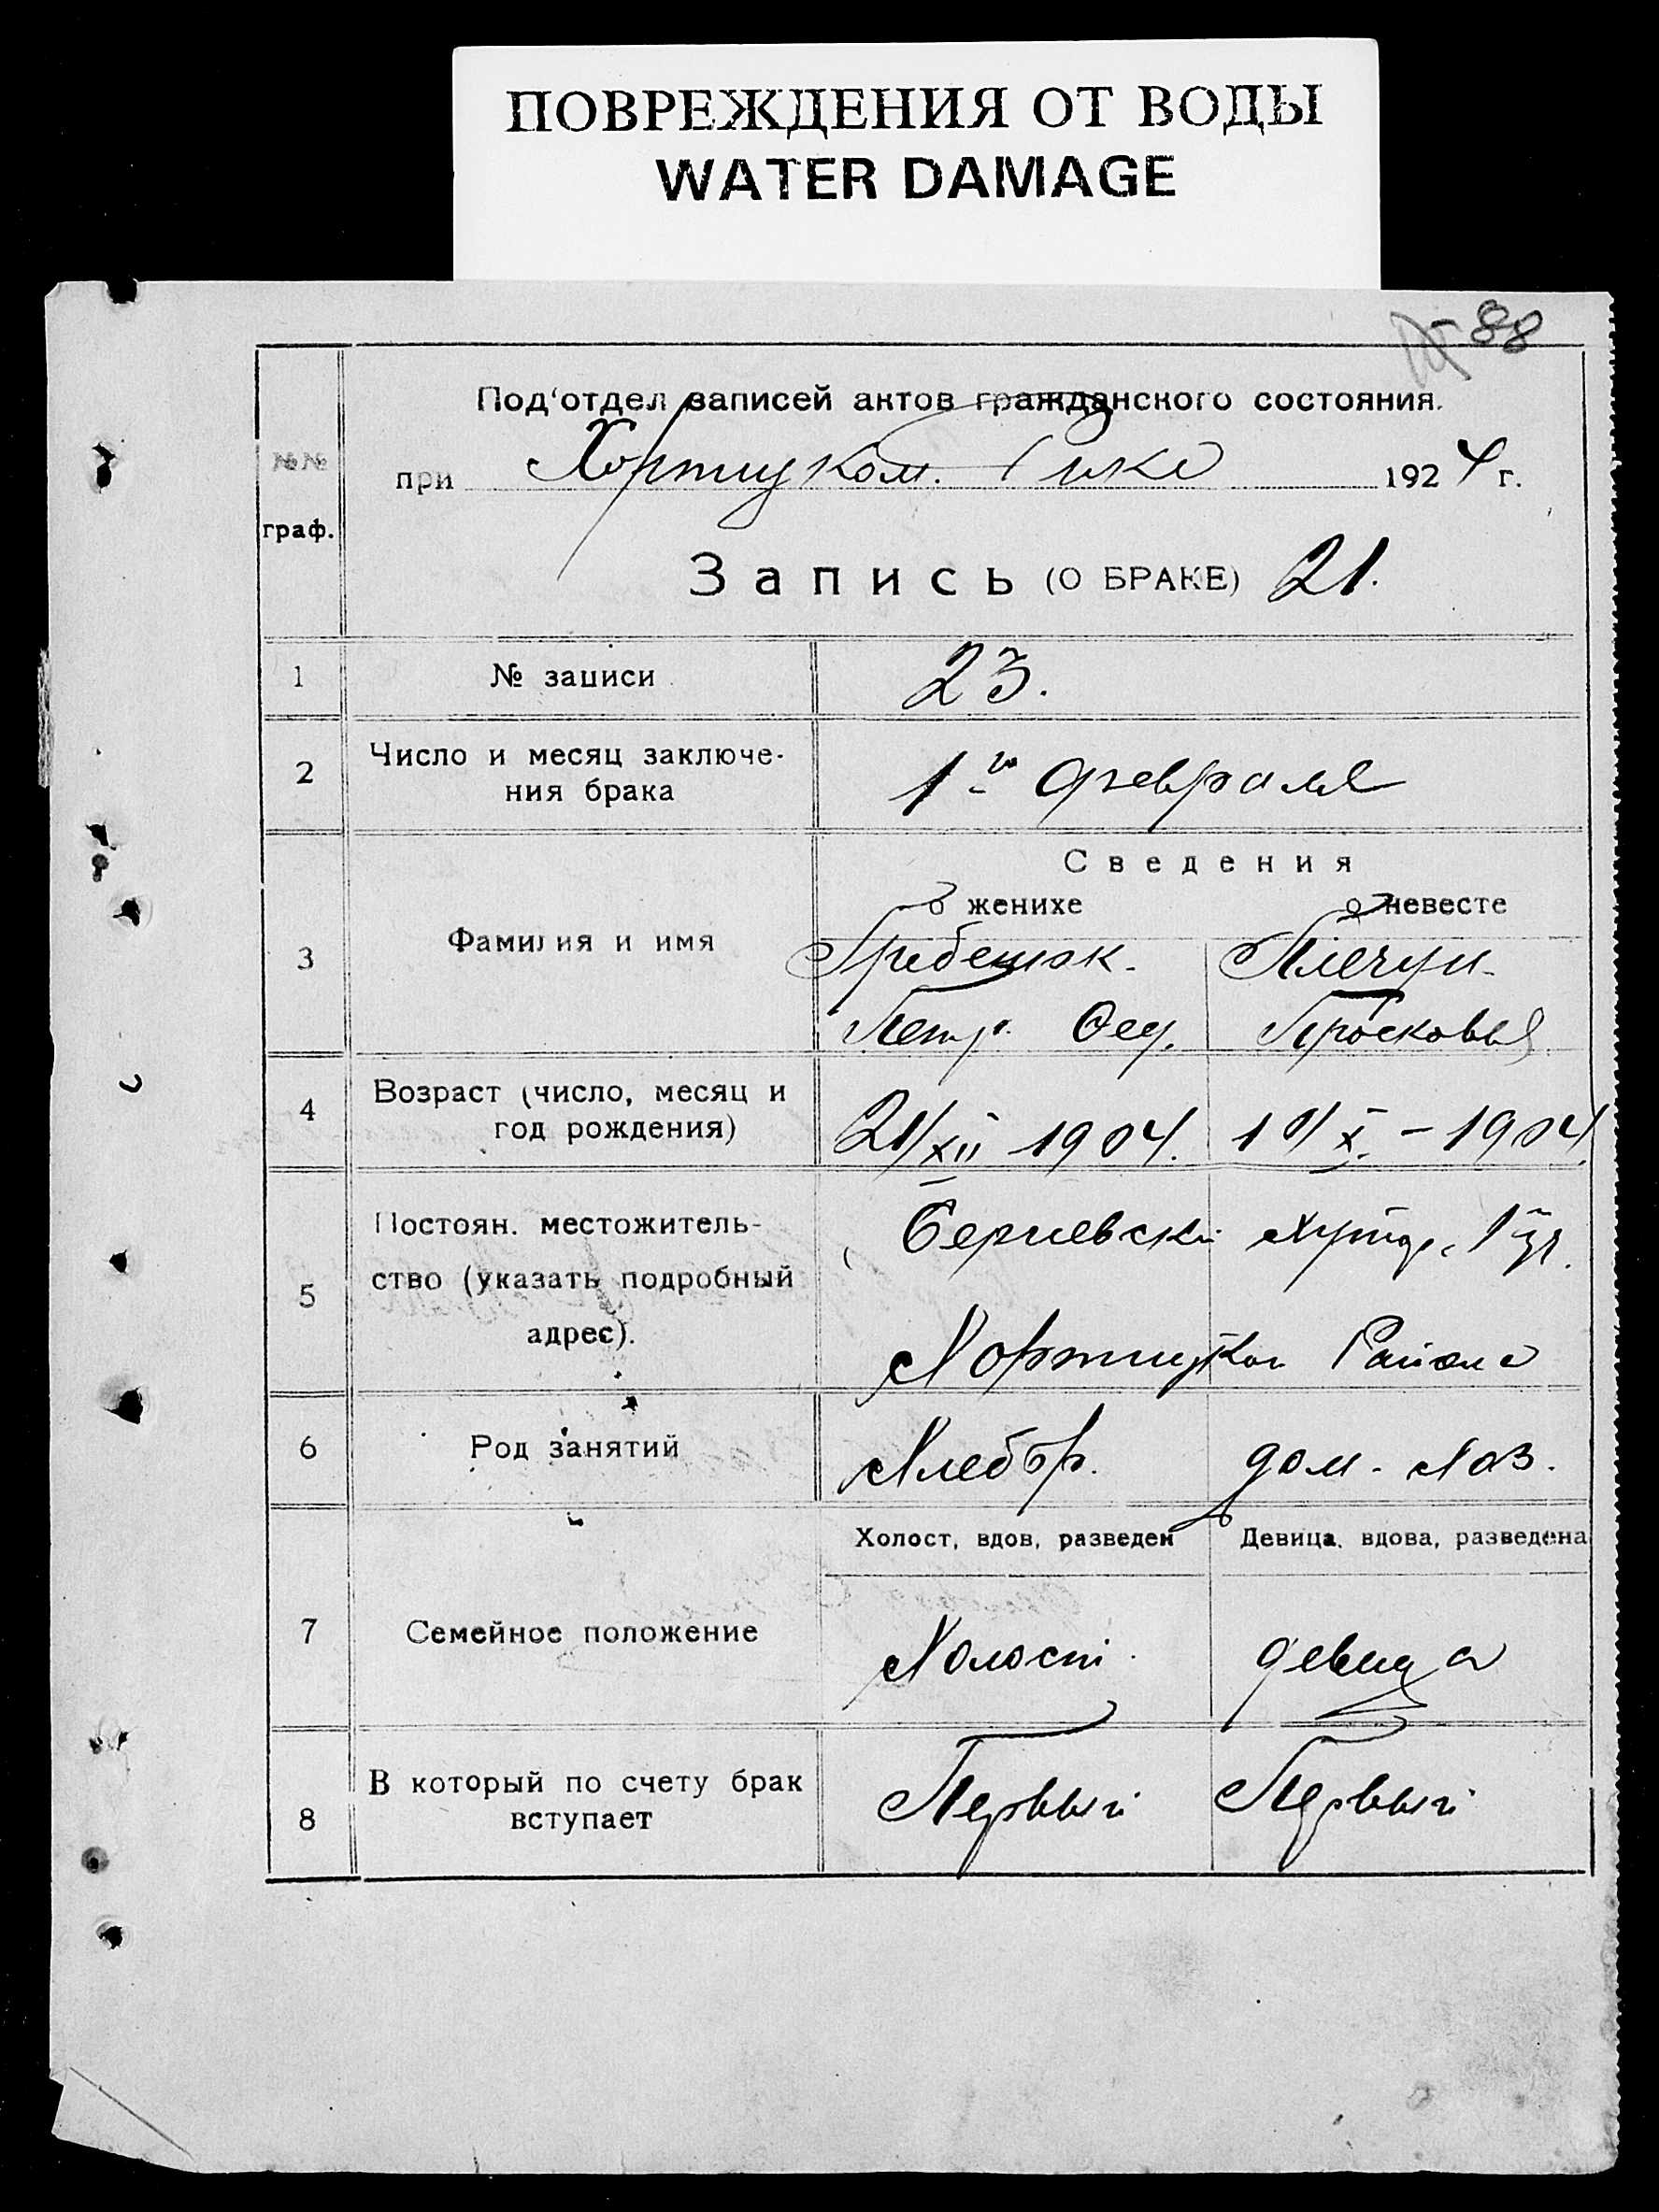 ПОВРЕЖДЕНИЯ ОТ ВОДЫ
WATER DAMAGE
88
Под‘отдел записей актов гражданского состояния.
№№
граф.
при Хортицком. Рике 1924 г.
Запись (О БРАКЕ) 21.
1 № записи 23.
2 Число и месяц заключе-
ния брака
1й февраля
Сведения
о женихе о невесте
3 Фамилия и имя
Гребенюк. Плечун
Петр Фед. Просковья
4 Возраст (число, месяц и
год рождения)
21/XII 1904. 10/X - 1904
5 Постоян. местожитель-
ство (указать подробный
адрес).
Сергиевский хутор
Хортицкого Района
6 Род занятий
Хлебор. дом. хоз.
Холост, вдов, разведен Девица, вдова, разведена
7 Семейное положение
Холост девица
8 В который по счету брак
вступает
Первый Первый